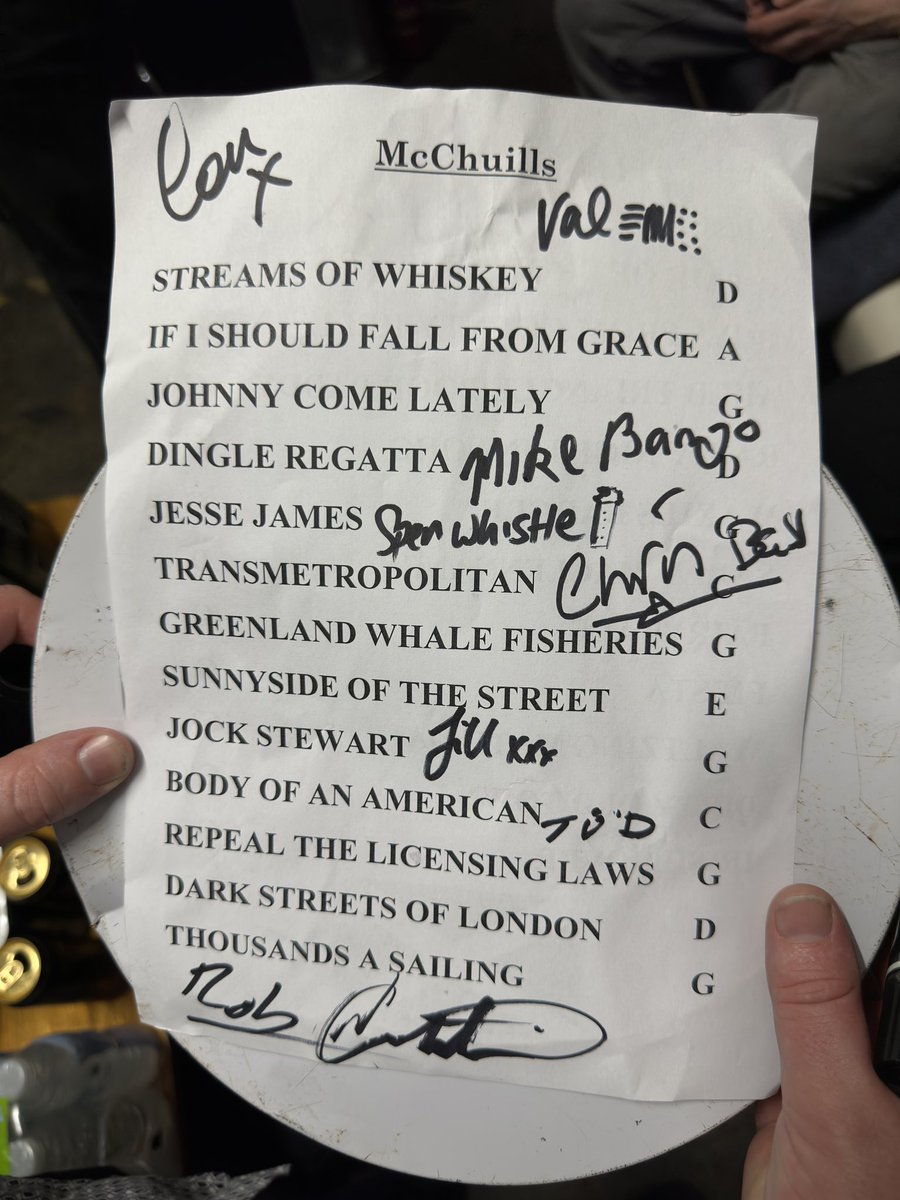 McChuills
Val
STREAMS OF WHISKEY D
IF I SHOULD FALL FROM GRACE A
JOHNNY COME LATELY G
DINGLE REGATTA Mike Banjo D
JESSE JAMES Spen whistle G
TRANSMETROPOLITAN C
GREENLAND WHALE FISHERIES G
SUNNYSIDE OF THE STREET E
JOCK STEWART Jill xxx G
BODY OF AN AMERICAN C
REPEAL THE LICENSING LAWS G
DARK STREETS OF LONDON D
THOUSANDS A SAILING G
Rob